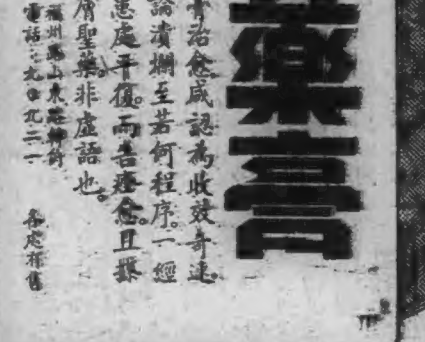 藥膏
膏治愈咸認為收效奇速。
論潰爛至若何程序。一經
患處平復。而告痊愈。且
膚聖藥非虛語也。
電話：九〇九二一
各處有售